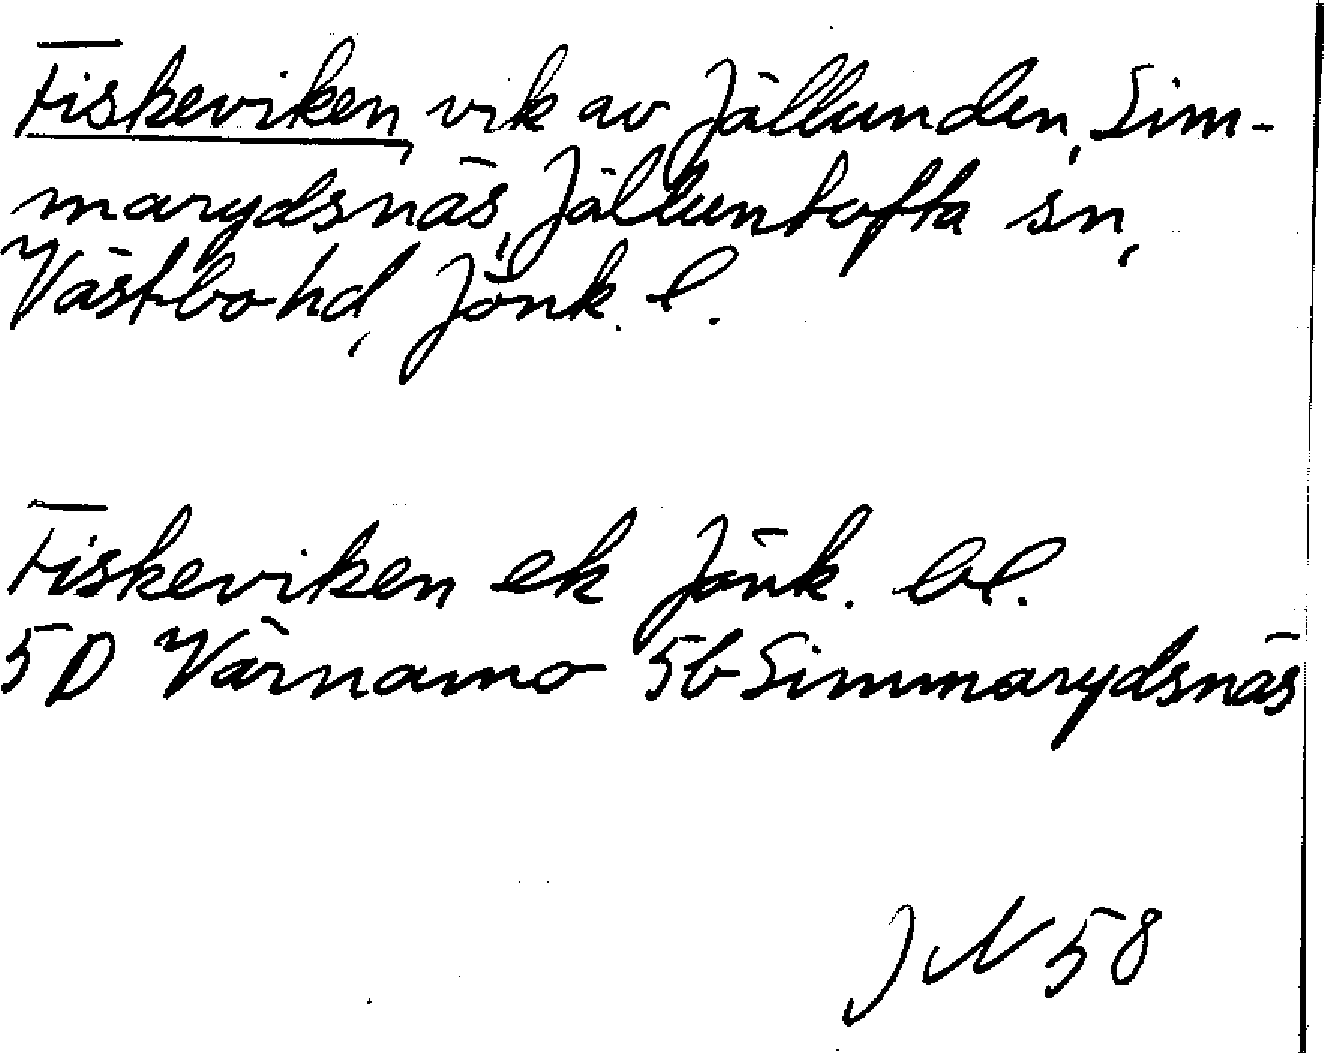 Fiskeviken, vik av Jällunden, Sim-
marydsnäs, Jälluntofta sn,
Västbo hd, Jönk. l.
Fiskeviken ek Jönk. bl.
5D Värnamo 5b Simmarydsnäs
JN 58